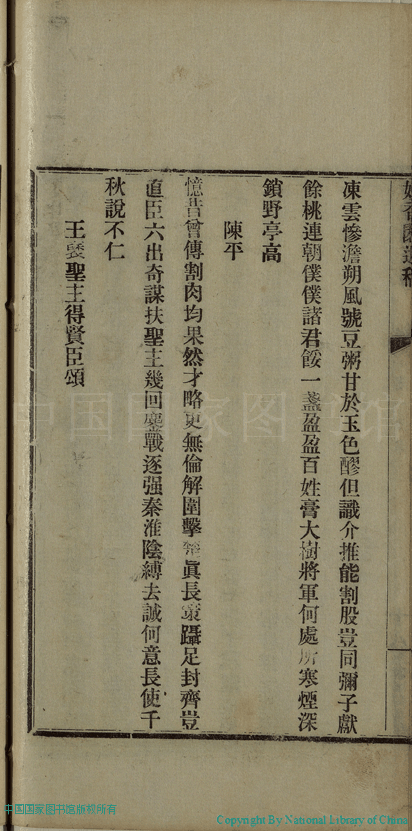 凍雲慘澹朔風號豆粥甘於玉色醪但識介推能割股豈同彌子獻
餘桃連朝僕僕諸君餒一盞盈盈百姓膏大樹將軍何處所寒煙深
鎖野亭高
陳平
憶昔曾傳割肉均果然才略更無倫解圍擊楚眞長策躡足封齊豈
直臣六出奇謀扶聖主幾回鏖戰逐强秦淮陰縛去誠何意長使千
秋說不仁
王襃聖主得賢臣頌
中国国家图书馆
中国国家图书馆版权所有
Copyright By National Library of China